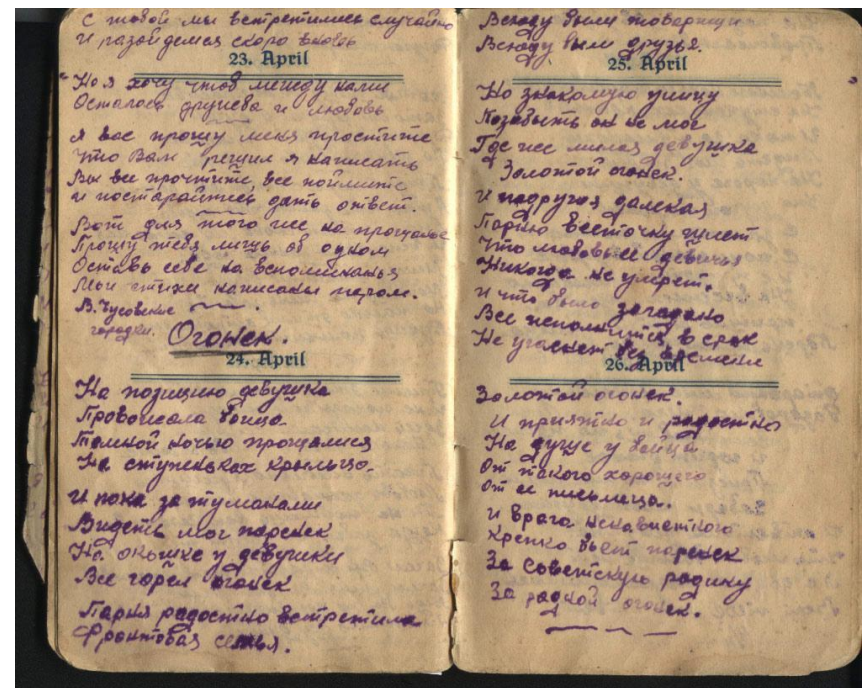 С тобой мы встретились случайно
И разойдемся скоро вновь
23. April
Но я хочу чтоб между нами
Осталось дружба и любовь
Я вас прошу меня простите
Что Вам решил я написать
Вы все прочтите, все поймите
и постарайтесь дать ответ.
Вот для того же на прощанье
Прошу тебя лишь об одном
Оставь себе на вспоминанья
Мои стихи написаны пером.
В. Чусовские
городки.
Огонек.
24. April
На позицию девушка
Провожала бойца
Темной ночью прощалися
На ступеньках крыльца.
И пока за туманами
Видеть мог паренек
На окошке у девушки
Все горел огонек
Парня радостно встретила
Фронтовая семья.
Всюду были товарищи
Всюду были друзья.
25. April
Но знакомую улицу
Позабыть он не мог
Где же милая девушка
Золотой огонек.
И подружка далекая
Парню весточку шлет
Что любовь ее девичья
Никогда не умрет.
И что было загадано
Все исполнится в срок
Не угаснет без времени
26. April
Золотой огонек.
И приятно и радостно
На душе у бойца
От такого хорошего
От ее письмеца.
И врага ненавистного
Крепко бьет паренек
За Советскую родину
За родной огонек.